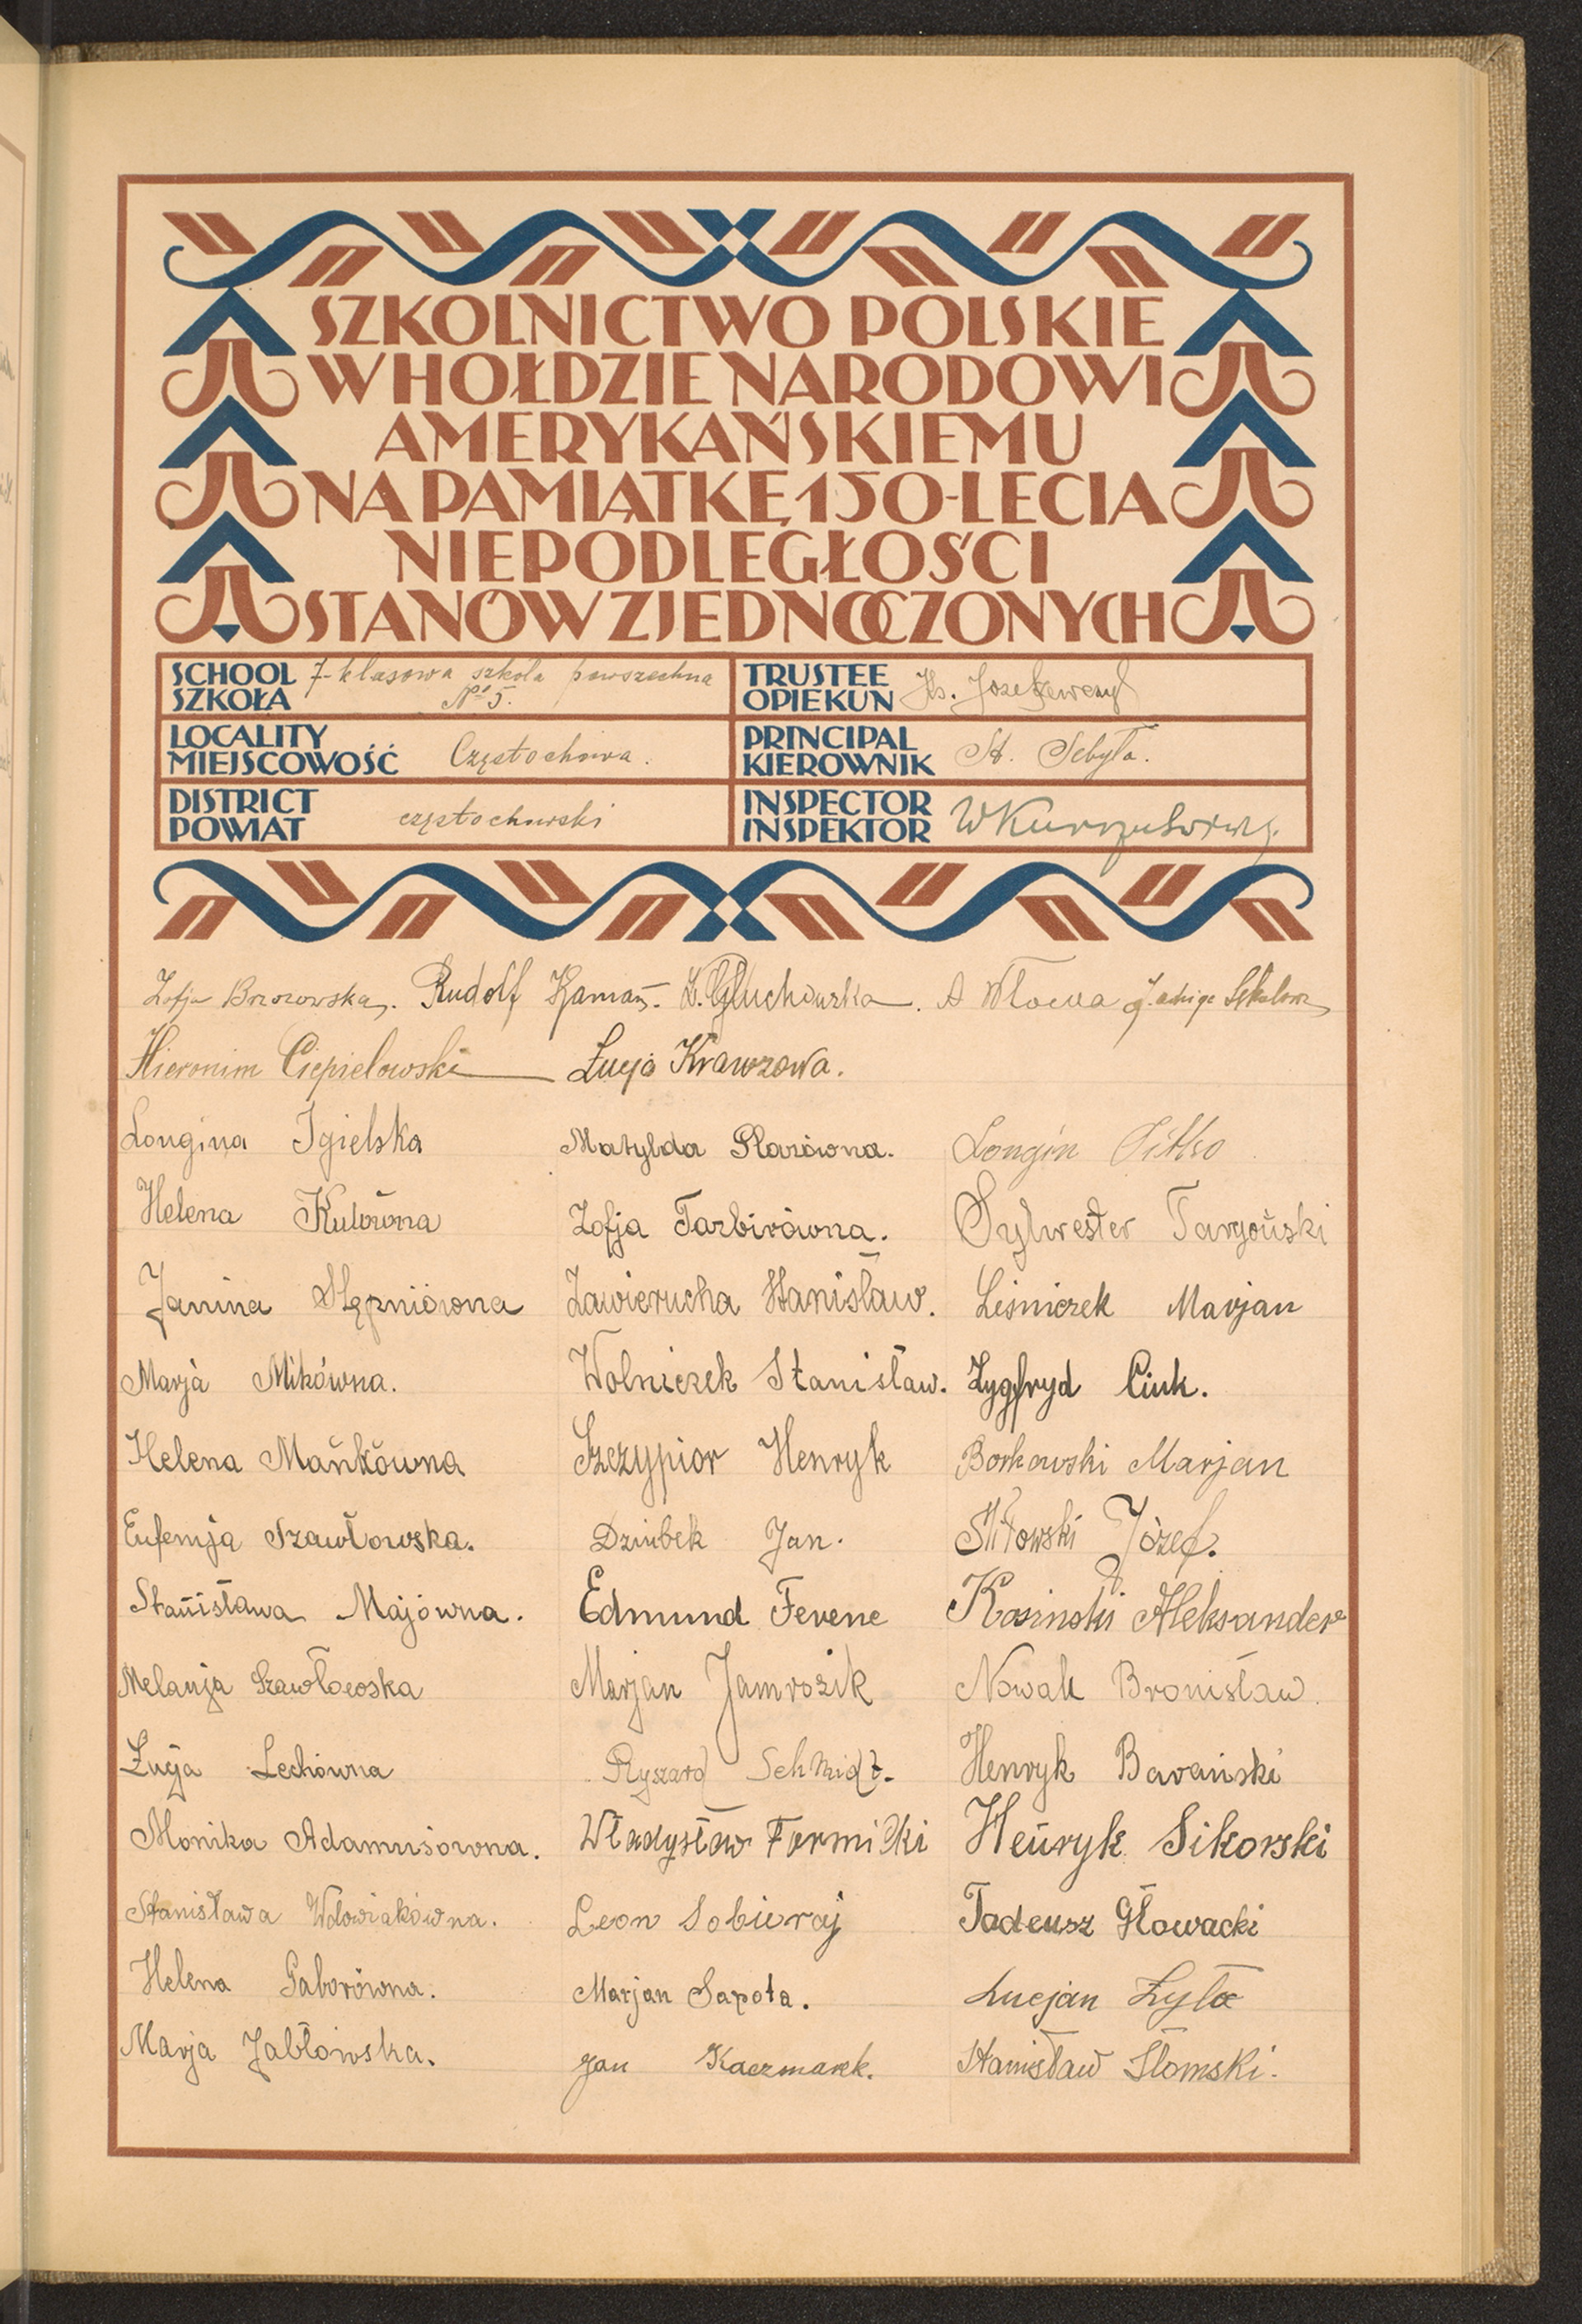 SZKOLNICTWO POLSKIE
W HOŁDZIE NARODOWI
AMERYKAŃSKIEMU
NA PAMIĄTKĘ 150-LECIA
NIEPODLEGŁOŚCI
STANÓW ZJEDNOCZONYCH
SCHOOL SZKOŁA 7-klasowa szkoła powszechna № 5.
TRUSTEE OPIEKUN Ks. Józef
LOCALITY MIEJSCOWOŚĆ Częstochowa.
PRINCIPAL KIEROWNIK St. Sebyła.
DISTRICT POWIAT częstochowski
INSPECTOR INSPEKTOR
Zofja Brzozowska. Rudolf L. Głuchowska. A
Hieronim Ciepielowski Łucja Krawzowa.
Longina Igielska Matylda Plazówna. Longin
Helena Kulówna Zofja Tarbirówna. Sylwester Targoński
Janina Stępniówna Zawierucha Stanisław. Leśniczek Marjan
Marja Mikówna. Wolniczek Stanisław. Zygfryd Ciuk.
Helena Mańkówna Szczypior Henryk Borkowski Marjan
Eufemja Szawłowska. Dziubek Jan. Józef.
Stanisława Majówna. Edmund Ferene Kosinski Aleksander
Melanja Szawłowska Marjan Jamrozik Nowak Bronisław.
Łucja Lechówna Ryszard Schmidt. Henryk Barański
Monika Adamusówna. Władysław Henryk Sikorski
Stanisława Wdowiakówna. Leon Sobieraj Tadeusz Głowacki
Helena Gaborówna. Marjan Sapota. Lucjan Żyła
Marja Jabłowska. Jan Kaczmarek. Stanisław Słomski.